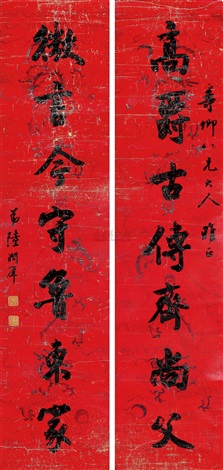 壽卿八兄大人雅正
高爵古傳齊尚父
微言今守魯東家
弟陸潤庠